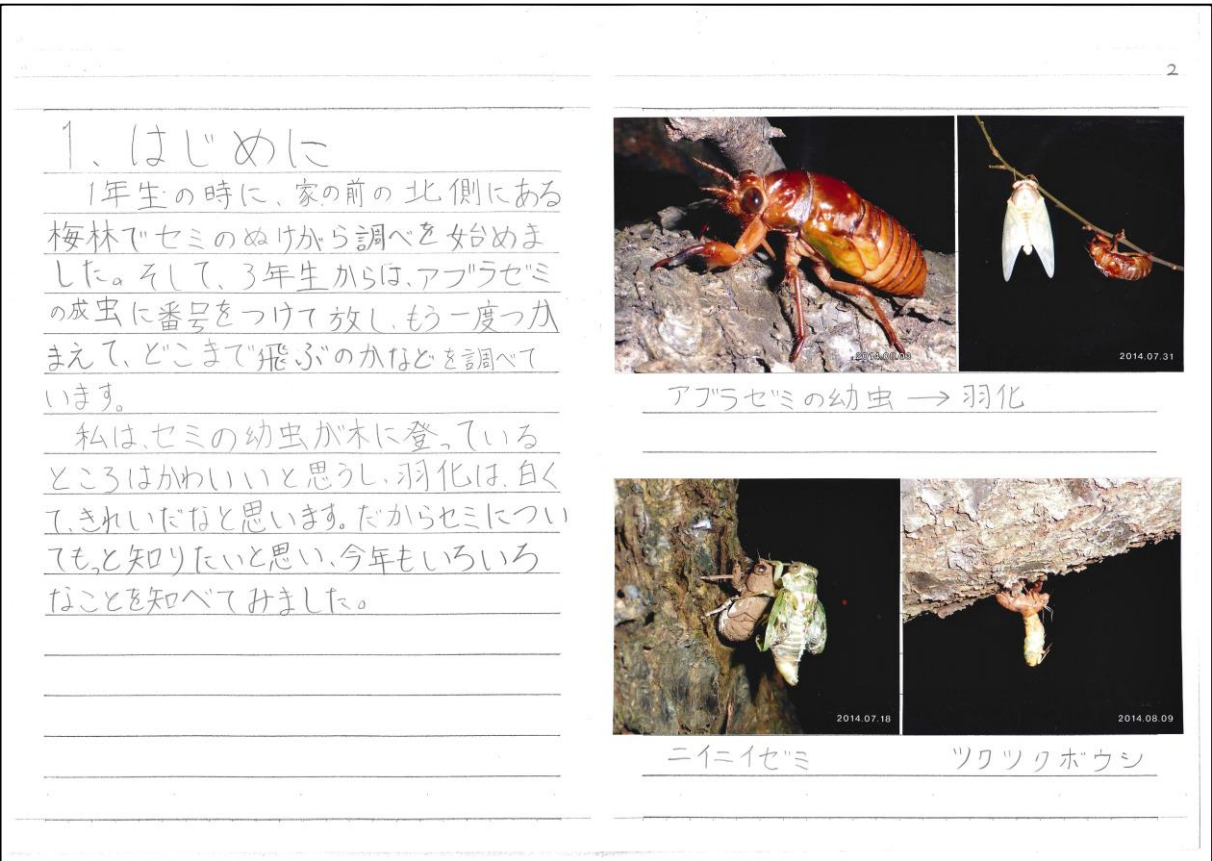 2
1、はじめに
1年生の時に、家の前の北側にある
梅林でセミのぬけがら調べを始めま
した。そして、3年生からは、アブラゼミ
の成虫に番号をつけて放し、もう一度つか
まえて、どこまで飛ぶのかなどを調べて
います。
私は、セミの幼虫が木に登っている
ところはかわいいと思うし、羽化は、白く
て、きれいだなと思います。だからセミについ
てもっと知りたいと思い、今年もいろいろ
なことを知べてみました。
2014.08.03
2014.07.31
アブラゼミの幼虫→羽化
2014.07.18
2014.08.09
ニイニイゼミ
ツクツクボウシ